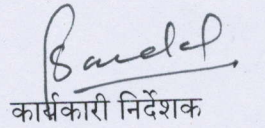 कार्यकारी निर्देशक